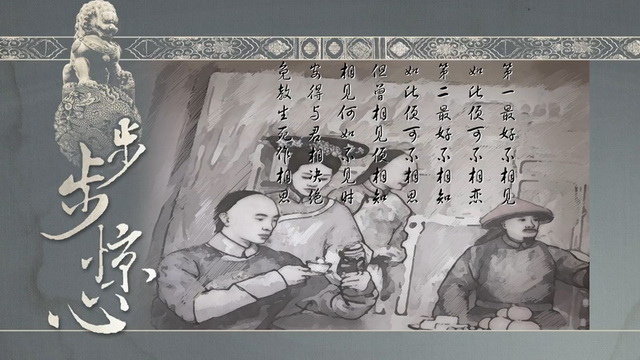 步步惊心
第一最好不相见
如此便可不相恋
第二最好不相知
如此便可不相思
但曾相见便相知
相见何如不见时
安得与君相决绝
免教生死作相思